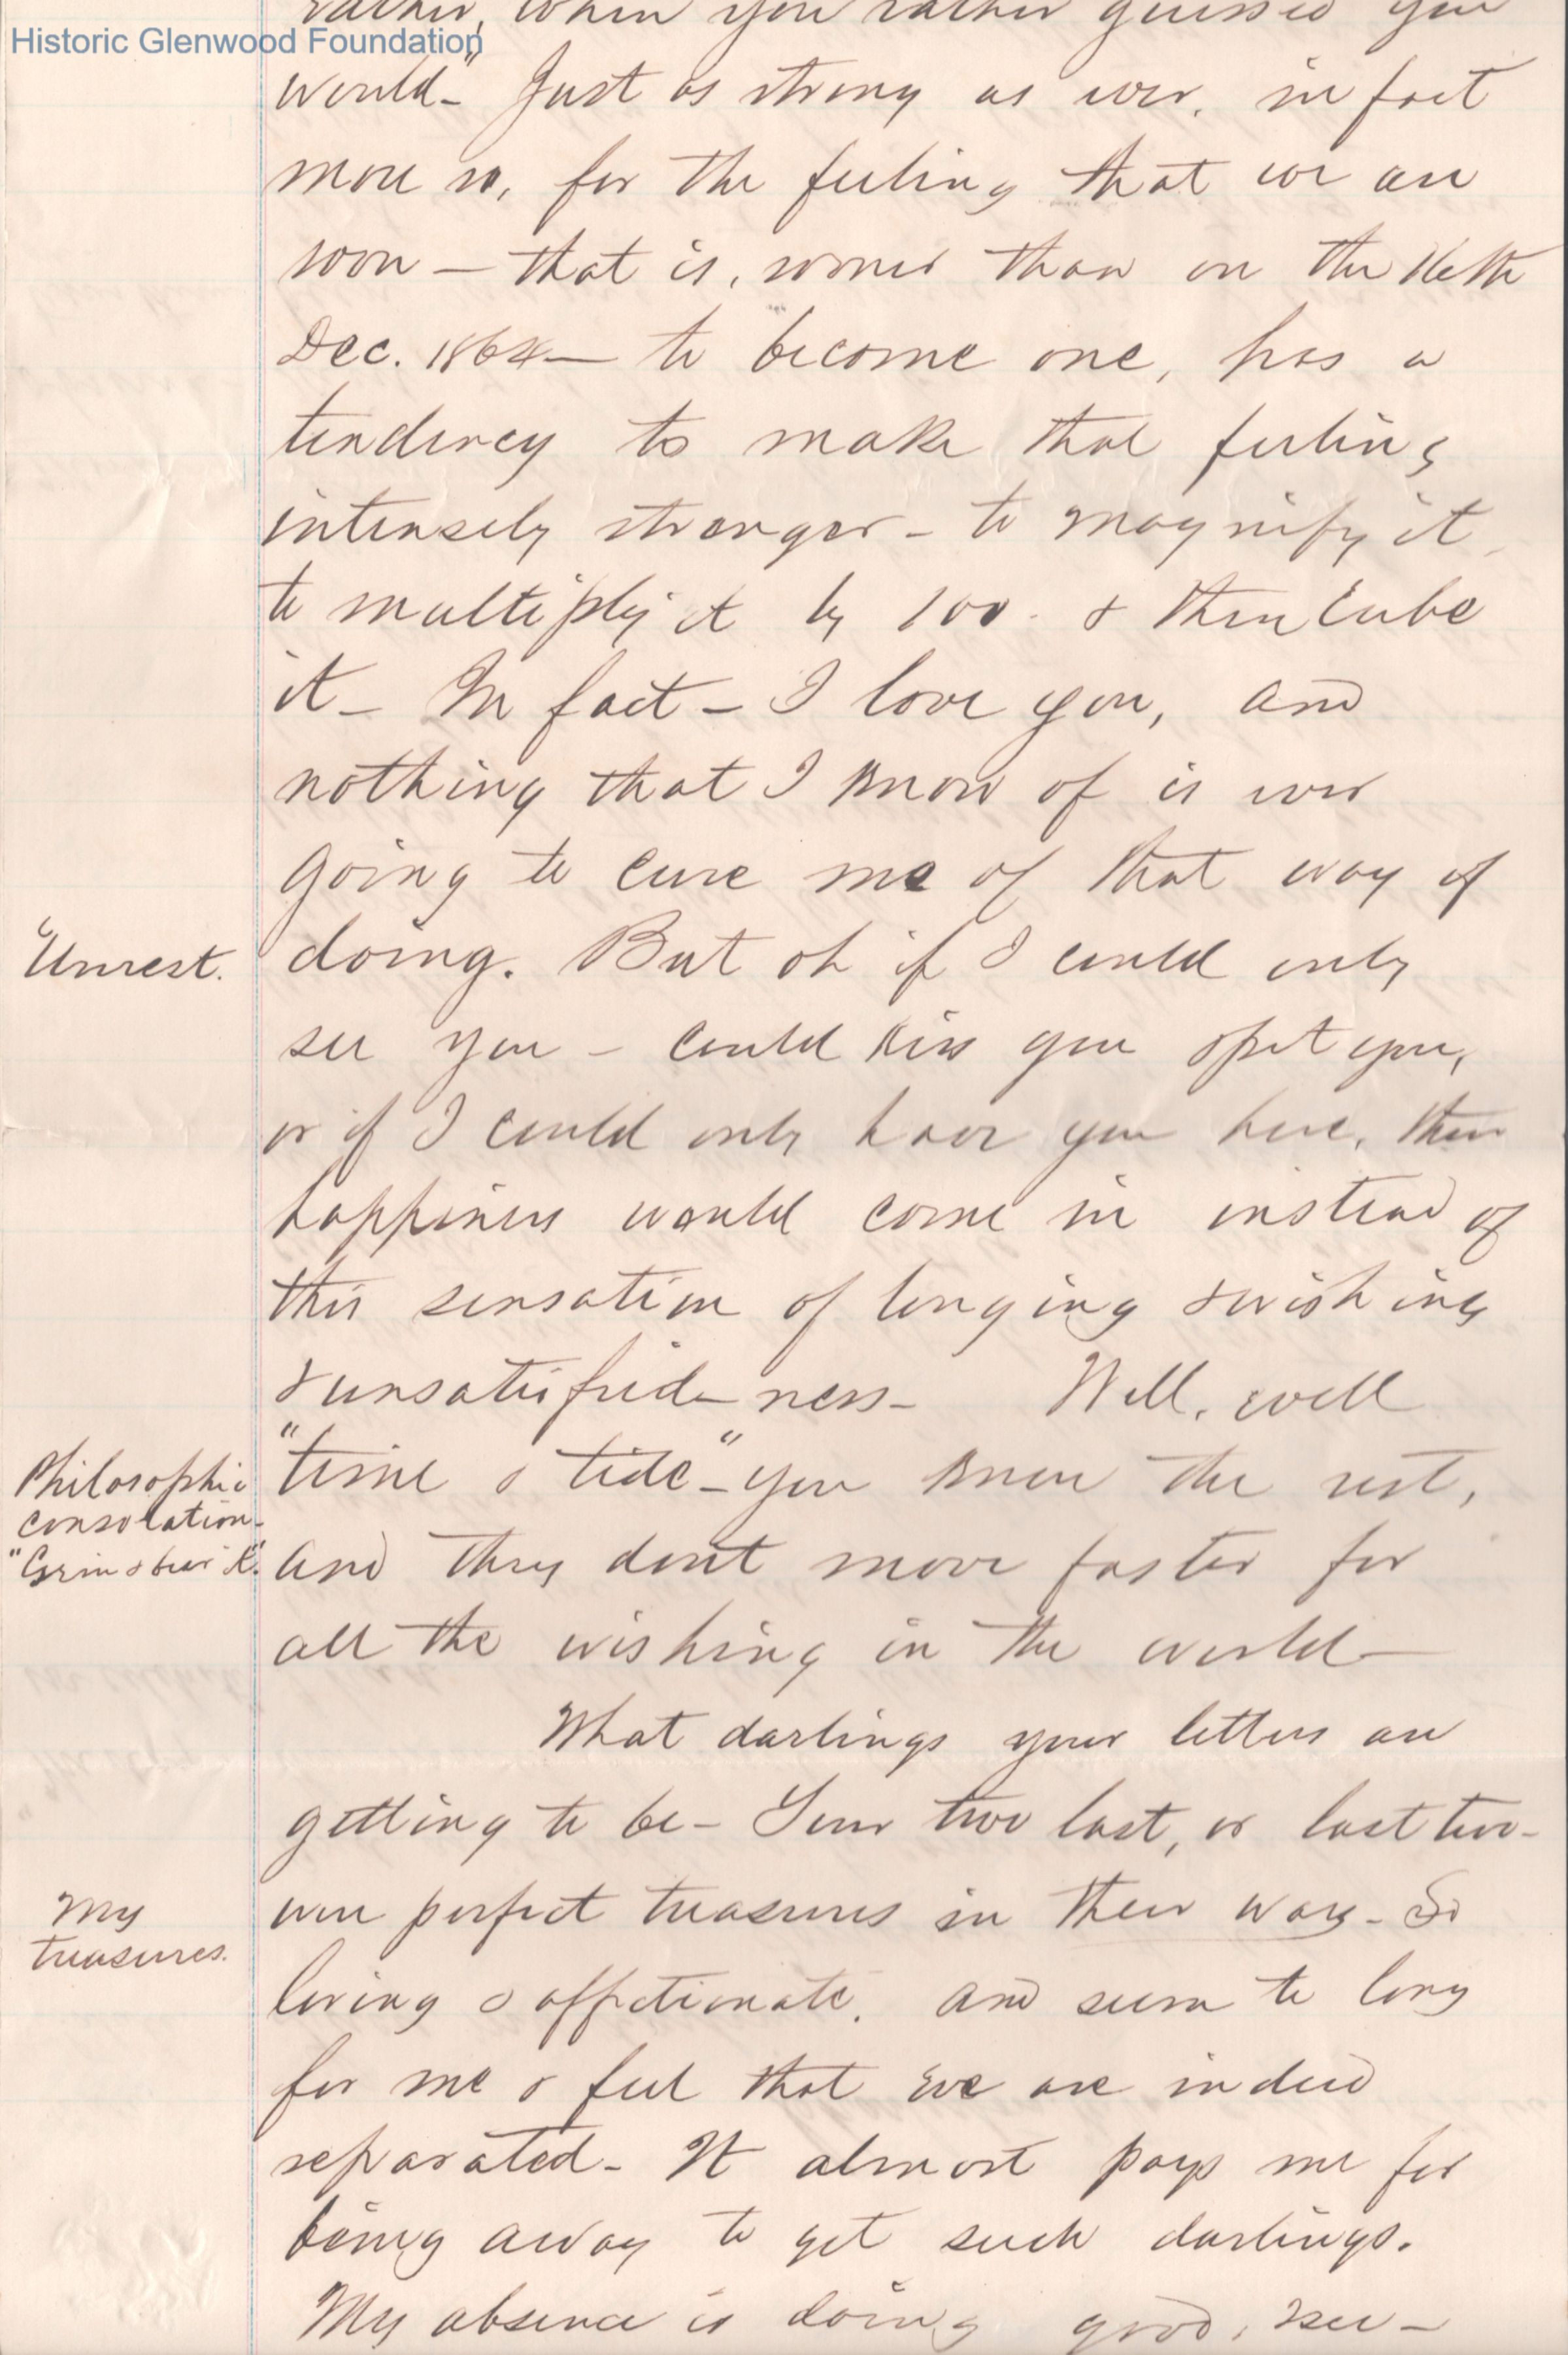 Historic Glenwood Foundation
rather, when you rather guessed you
would"- Just as strong as ever, in fact
more so, for the feeling that we are
soon - that is, sooner than on the
Dec. 1864 - to become one, has a
tendency to make that feeling
intensely stronger - to magnify it,
to multiply it by 100 & then cube
it - In fact - I love you, and
nothing that I know of is ever
going to cure me of that way of
Unrest.
doing. But oh if I could only
see you - could kiss you & pet you,
or if I could only have you here, then
happiness would come in instead of
this sensation of longing & wishing
& unsatisfied-ness - Well, well
Philosophic
consolation -
"Grin & bear it."
"time & tide" - you know the rest,
and they dont move faster for
all the wishing in the world -
What darlings your letters are
getting to be - Your two last, or last two -
My
treasures.
were perfect treasures in their way - So
loving & affectionate, and seem to long
for me & feel that we are indeed
separated - It almost pays me for
being away to get such darlings.
My absence is doing good, I see -